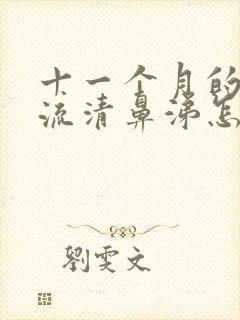 十一个月的
流清鼻涕怎
劉雯文